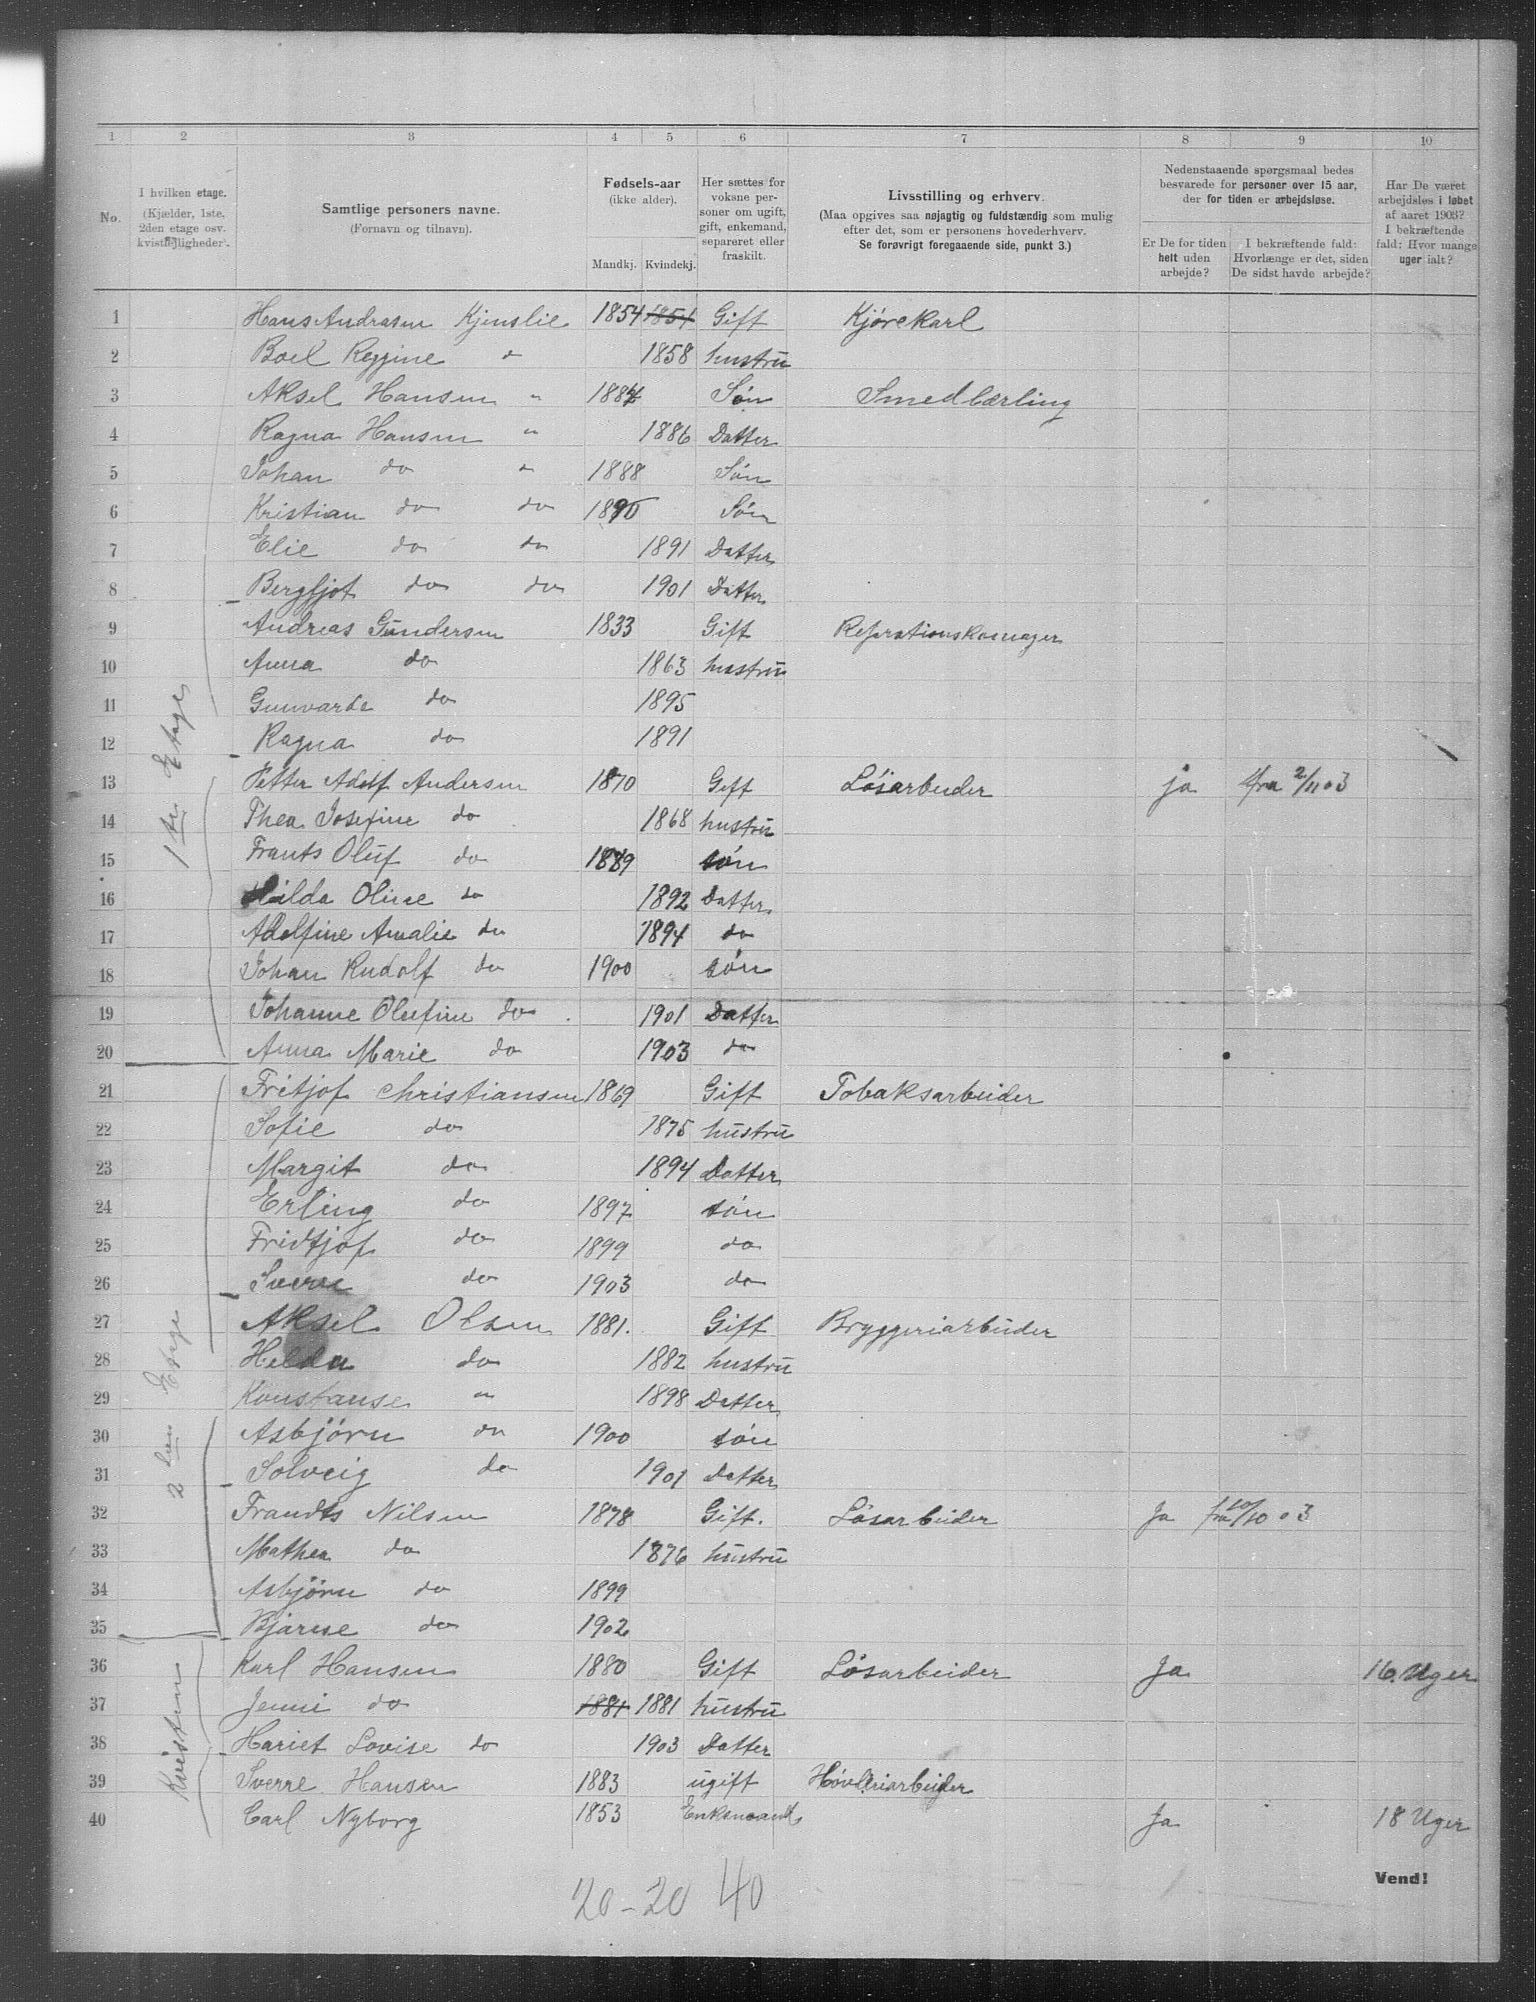 1 2 3 4 5 6 7 8 9 10
No.
I hvilken etage.
(Kjælder, 1ste,
2den etage osv.
kvistlejligheder).
Samtlige personers navne.
(Fornavn og tilnavn).
Fødsels-aar
(ikke alder).
Mandkj. Kvindekj.
Her sættes for
voksne per-
soner om ugift,
gift, enkemand,
separeret eller
fraskilt.
Livsstilling og erhverv.
(Maa opgives saa nøjagtig og fuldstændig som mulig
efter det, som er personens hovederhverv.
Se forøvrigt foregaaende side, punkt 3.)
Nedenstaaende spørgsmaal bedes
besvarede for personer over 15 aar,
der for tiden er arbejdsløse.
Er De for tiden
helt uden
arbejde?
I bekræftende fald:
Hvorlænge er det, siden
De sidst havde arbejde?
Har De været
arbejdsløs i løbet
af aaret 1903?
I bekræftende
fald: Hvor mange
uger ialt?
1 Hans Andrasen Kjenslie 1854 1854 Gift Kjørekarl
2 Boel Reggine " 1858 hustru
3 Aksel Hansen " 1884 Søn Smedlærling
4 Ragna Hansen " 1886 Datter
5 Johan do " 1888 Søn
6 Kristian do do 1890 Søn
7 Elie do do 1891 Datter
8 Bergljot do do 1901 Datter
9 Andreas Gundersen 1833 Gift Reperationskomager
10 Anna do 1863 hustru
11 Gunvarda do 1895
12 Ragna do 1891
1ste Etage
13 Petter Adolf Andersen 1870 Gift Løsarbeider ja fra 2/11 03
14 Thea Josefine do 1868 hustru
15 Frants Oluf do 1889 søn
16 Hilda Oline do 1892 Datter
17 Adolfine Amalie do 1894 do
18 Johan Rudolf do 1900 søn
19 Johanne Olufine do 1901 Datter
20 Anna Marie do 1903 do
21 Fritjof Christiansen 1869 Gift Tobaksarbeider
22 Sofie do 1875 hustru
23 Margit do 1894 Datter
24 Erling do 1897 søn
25 Fridtjof do 1899 do
26 Sverre do 1903 do
27 Aksel Olsen 1881. Gift Bryggeriarbeider
28 Helda do 1882 hustru
2den Etage
29 Konstanse " 1898 Datter
30 Asbjørn do 1900 søn
31 Solveig do 1901 Datter
32 Frandts Nilsen 1878 Gift. Løsarbeider Ja fra 20/10 03
33 Mathea do 1876 hustru
34 Asbjørn do 1899
35 Bjarne do 1902
36 Karl Hansen 1880 Gift Løsarbeider Ja 16 Uger
37 Jenni do 1881 1881 hustru
38 Hariet Lovise do 1903 Datter
Kvisten
39 Sverre Hansen 1883 ugift Høvleriarbeider
40 Carl Nyborg 1853 Enkemand Ja 18 Uger
Vend!
20 - 20 40